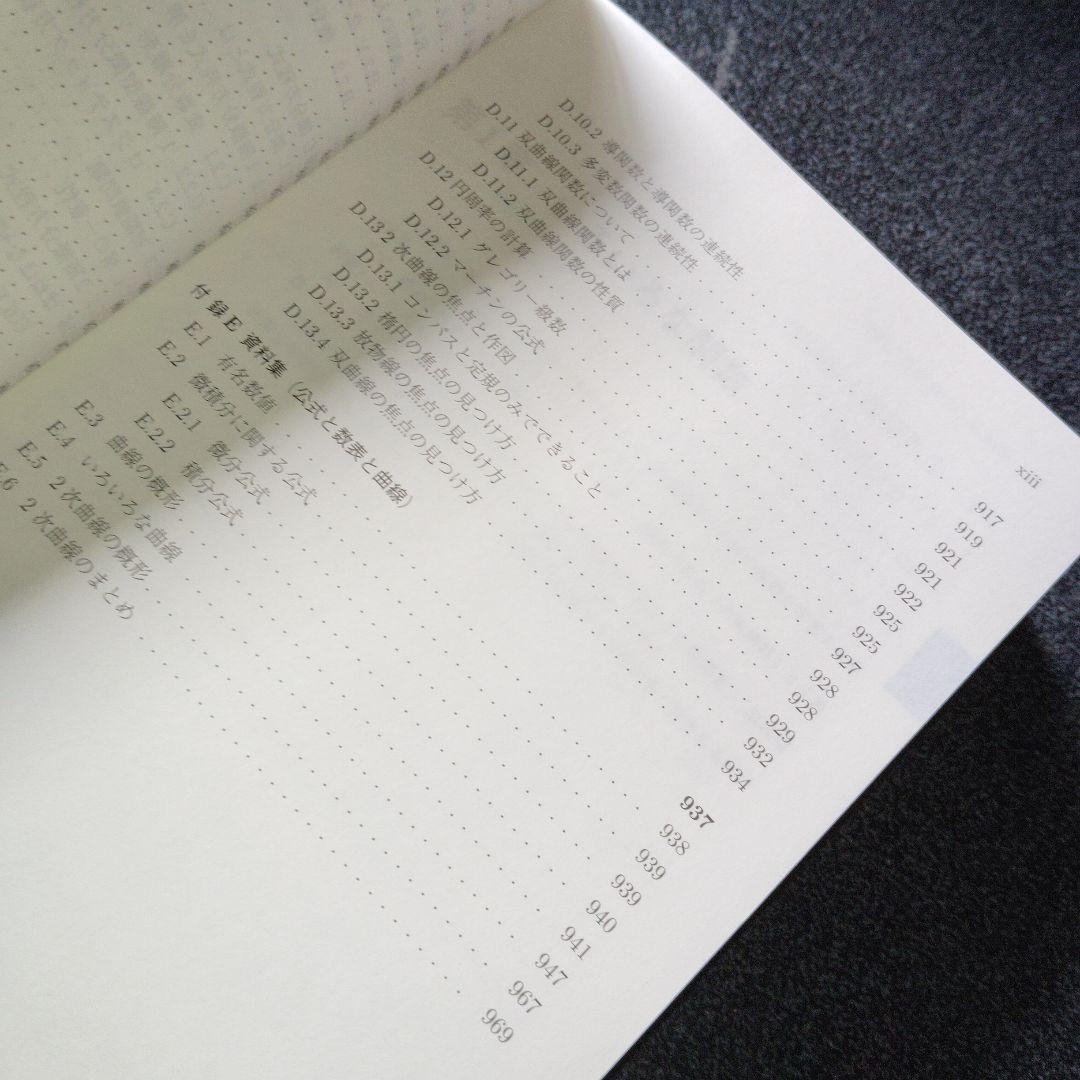 xiii
D.10.2 導関数と導関数の連続性 917
D.10.3 多変数関数の連続性 919
D.11 双曲線関数について 921
D.11.1 双曲線関数とは 921
D.11.2 双曲線関数の性質 922
D.12 円周率の計算 925
D.12.1 グレゴリー級数 925
D.12.2 マーチンの公式 927
D.13 2次曲線の焦点と作図 928
D.13.1 コンパスと定規のみでできること 928
D.13.2 楕円の焦点の見つけ方 929
D.13.3 放物線の焦点の見つけ方 932
D.13.4 双曲線の焦点の見つけ方 934
付録E 資料集(公式と数表と曲線) 937
E.1 有名数値 938
E.2 微積分に関する公式 939
E.2.1 微分公式 939
E.2.2 積分公式 940
E.3 曲線の概形 941
E.4 いろいろな曲線 947
E.5 2次曲線の概形 967
E.6 2次曲線のまとめ 969